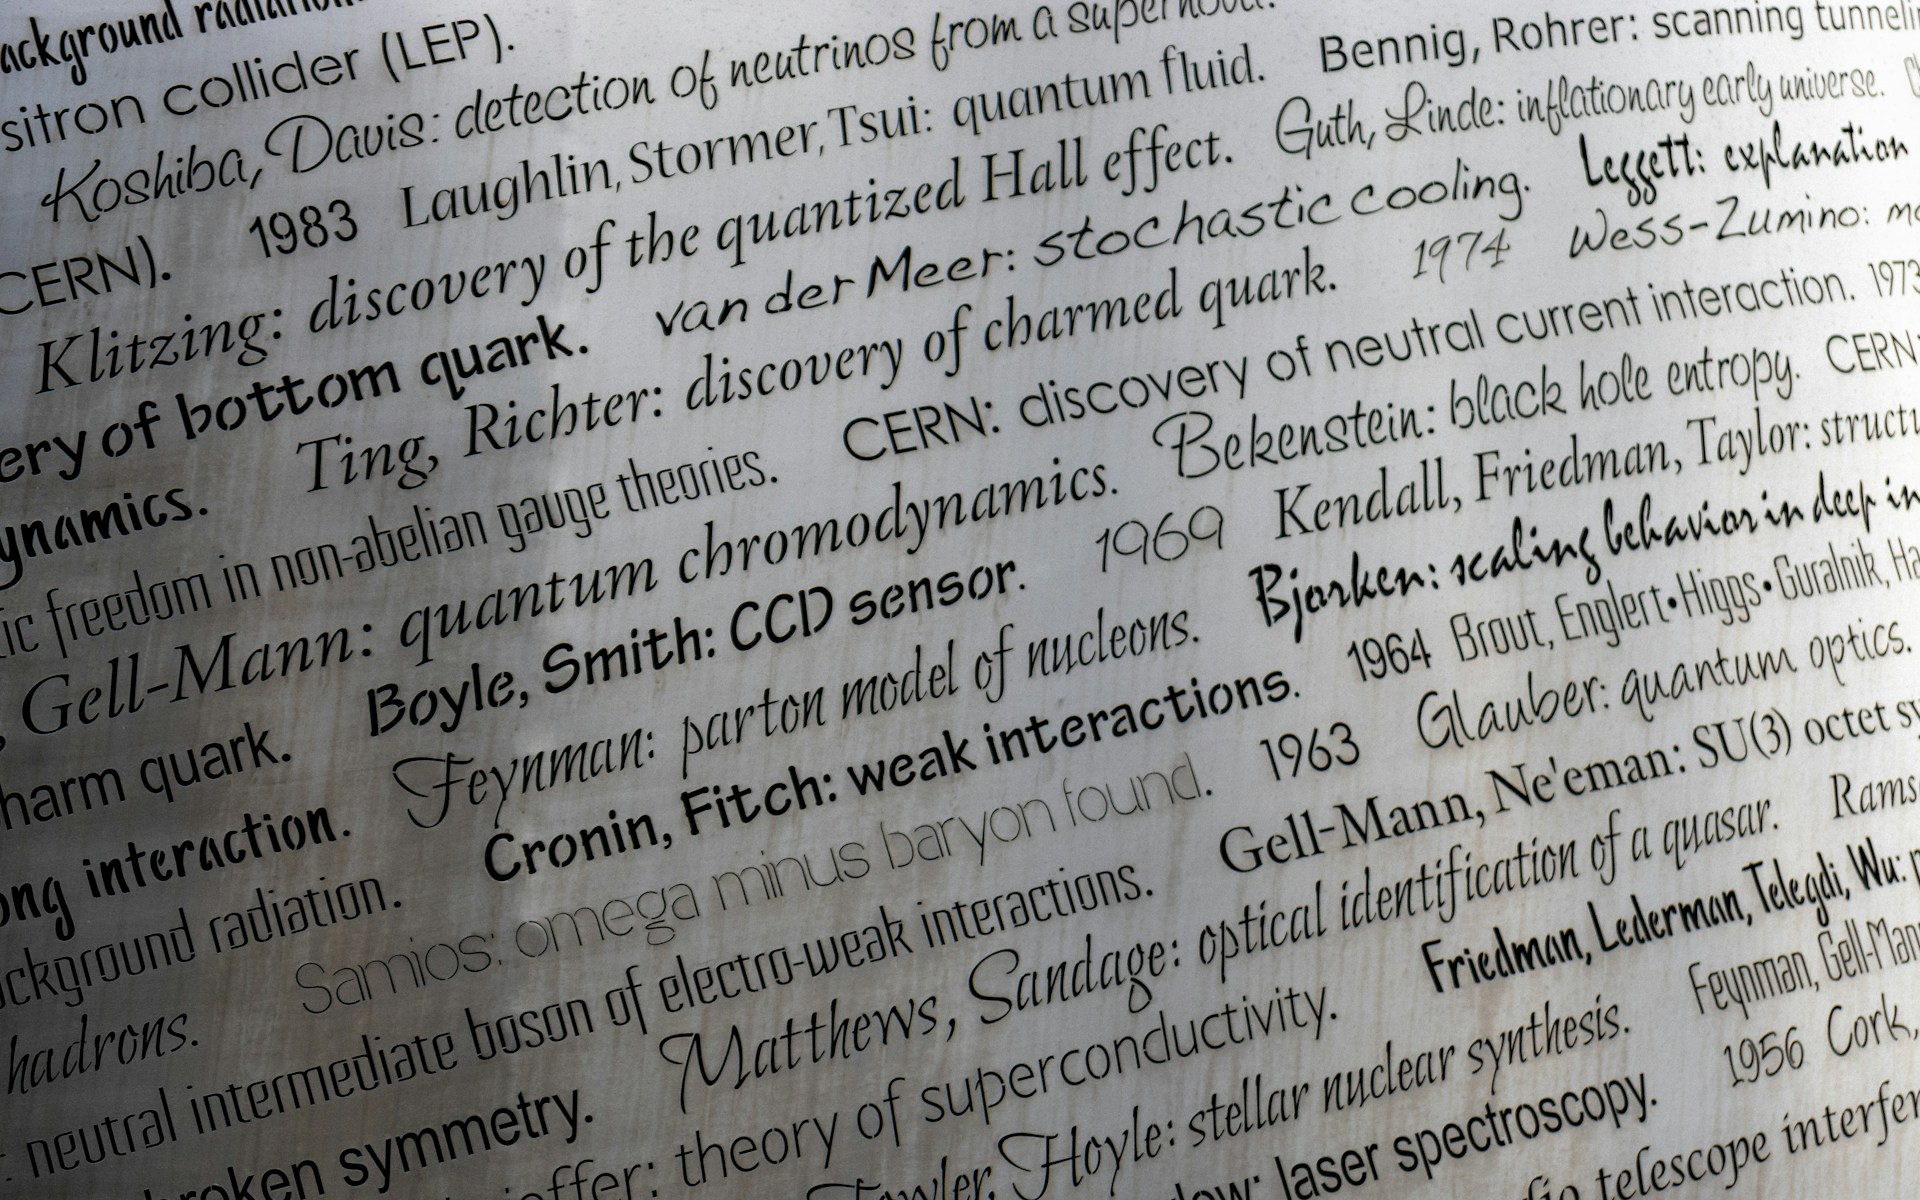 ackground radiation
sitron collider (LEP).
Koshiba, Davis: detection of neutrinos from a supernova.
CERN). 1983 Laughlin, Stormer, Tsui: quantum fluid. Bennig, Rohrer: scanning tunneli
Klitzing: discovery of the quantized Hall effect. Guth, Linde: inflationary early universe.
ery of bottom quark. van der Meer: stochastic cooling. Leggett: explanation
ynamics. Ting, Richter: discovery of charmed quark. 1974 Wess-Zumino: mo
ic freedom in non-abelian gauge theories. CERN: discovery of neutral current interaction. 1973
, Gell-Mann: quantum chromodynamics. Bekenstein: black hole entropy. CERN:
harm quark. Boyle, Smith: CCD sensor. 1969 Kendall, Friedman, Taylor: structu
ong interaction. Feynman: parton model of nucleons. Bjorken: scaling behavior in deep in
ackground radiation. Cronin, Fitch: weak interactions. 1964 Brout, Englert•Higgs•Guralnik, Ha
hadrons. Samios: omega minus baryon found. 1963 Glauber: quantum optics.
: neutral intermediate boson of electro-weak interactions. Gell-Mann, Ne'eman: SU(3) octet sy
roken symmetry. Matthews, Sandage: optical identification of a quasar. Rams
ieffer: theory of superconductivity. Friedman, Lederman, Telegdi, Wu: p
Fowler, Hoyle: stellar nuclear synthesis. Feynman, Gell-Mann
low: laser spectroscopy. 1956 Cork,
dio telescope interfer